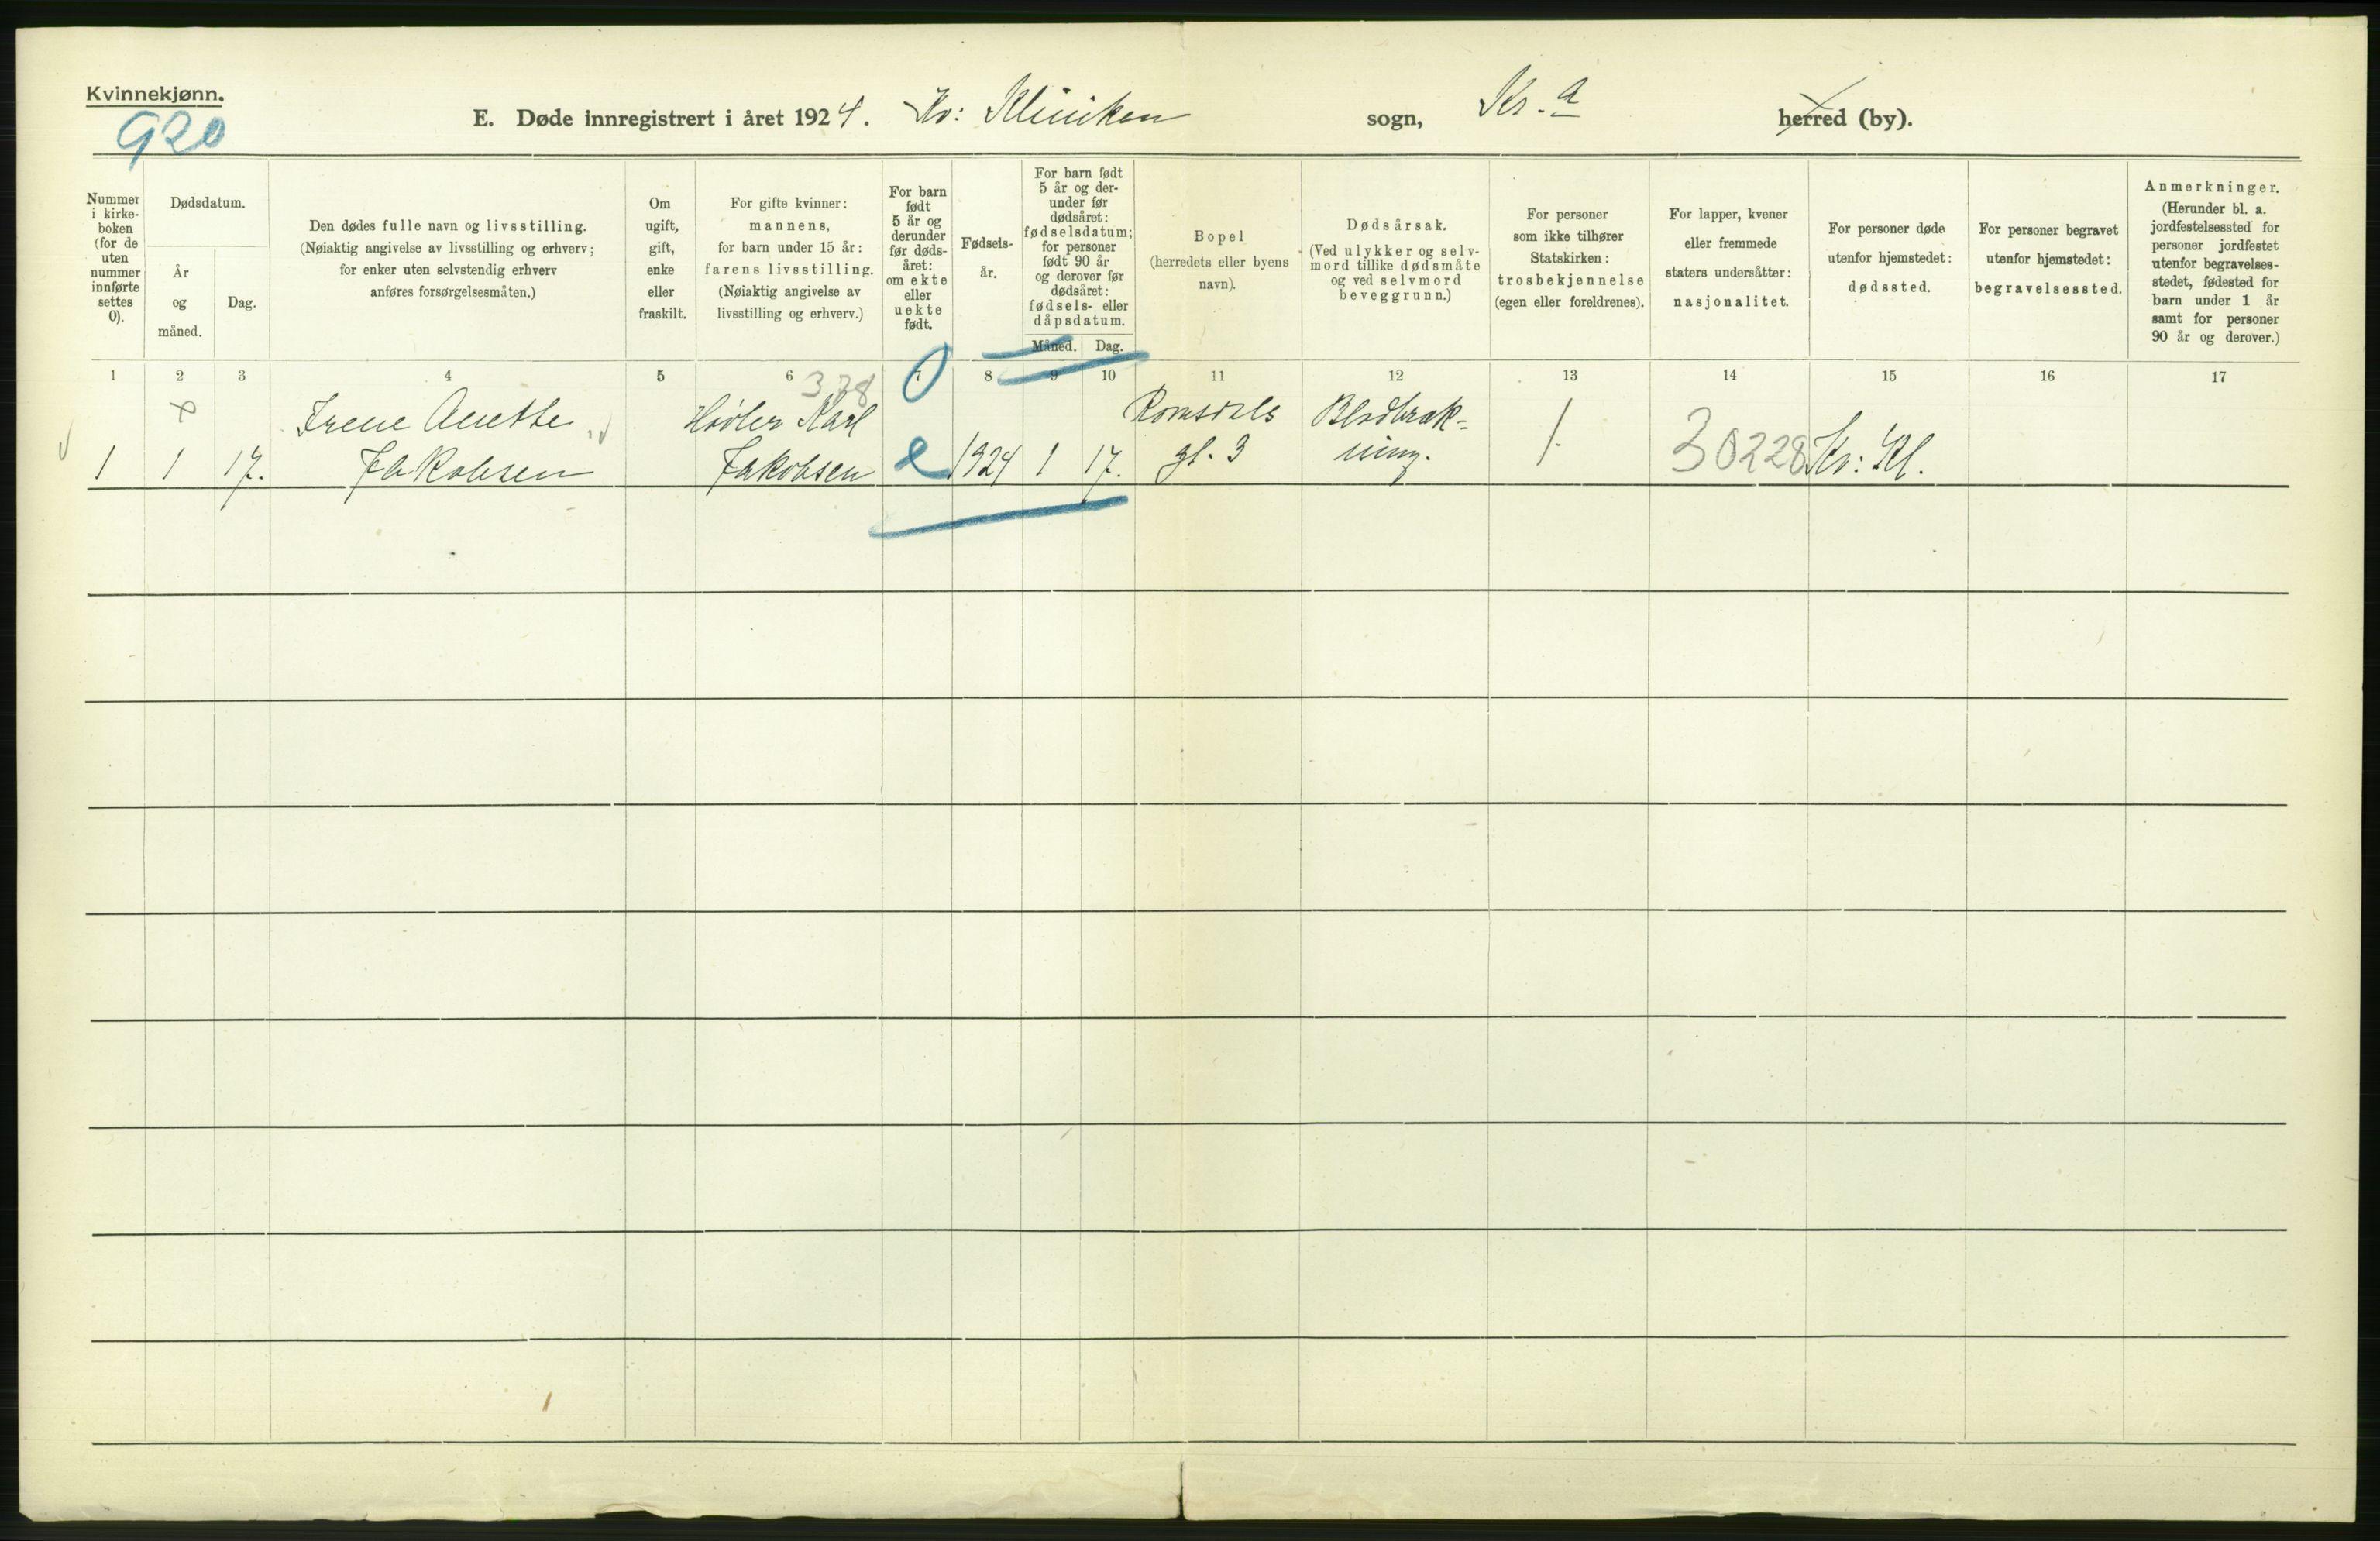 Kvinnekjønn.
920
E. Døde innregistrert i året 1924. Kv: Kliniken sogn, Kr.a herred (by).
Nummer i kirke- boken (for de uten nummer innførte settes 0).
Dødsdatum.
År og måned.
Dag.
Den dødes fulle navn og livsstilling.
(Nøiaktig angivelse av livsstilling og erhverv;
for enker uten selvstendig erhverv
anføres forsørgelsesmåten.)
Om
ugift,
gift,
enke
eller
fraskilt.
For gifte kvinner:
mannens,
for barn under 15 år:
farens livsstilling.
(Nøiaktig angivelse av
livsstilling og erhverv.)
For barn
født
5 år og
derunder
før døds-
året:
om ekte
eller
uekte
født.
Fødsels-
år.
For barn født
5 år og der-
under før
dødsåret:
fødselsdatum;
for personer
født 90 år
og derover før
dødsåret:
fødsels- eller
dåpsdatum.
Måned. Dag.
Bopel
(herredets eller byens
navn).
Dødsårsak.
(Ved ulykker og selv-
mord tillike dødsmåte
og ved selvmord
beveggrunn.)
For personer
som ikke tilhører
Statskirken:
trosbekjennelse
(egen eller foreldrenes).
For lapper, kvener
eller fremmede
staters undersåtter:
nasjonalitet.
For personer døde
utenfor hjemstedet:
dødssted.
For personer begravet
utenfor hjemstedet:
begravelsessted.
Anmerkninger.
(Herunder bl. a.
jordfestelsessted for
personer jordfestet
utenfor begravelses-
stedet, fødested for
barn under 1 år
samt for personer
90 år og derover.)
1 2 3 4 5 6 7 8 9 10 11 12 13 14 15 16 17
328 0
Irene Anette Karl Romsdals Blodbræk-
1 1 17. Jakobsen Jakobsen e 1924 1 17. gt. 3 ning. 1. 30228 Kv: Kl.